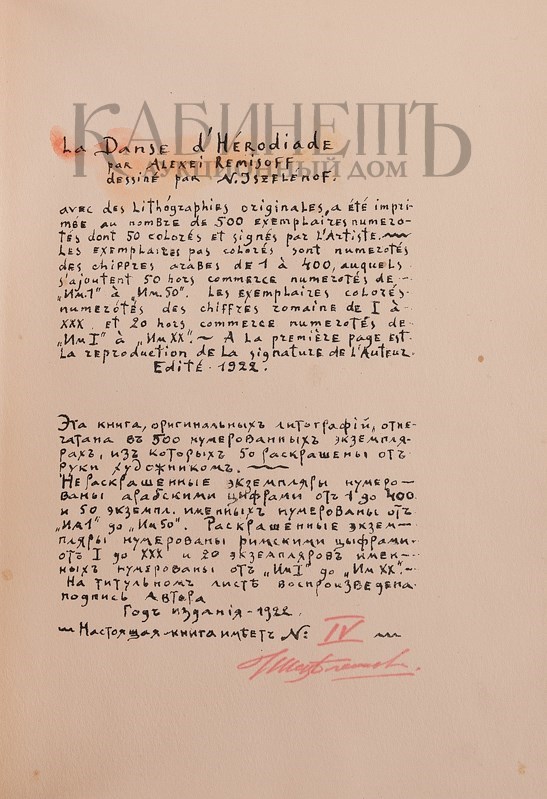 КАБИНЕТЪ
АУКЦИОННЫЙ ДОМ
La Danse d'Hérodiade
par Alexei Remisoff
dessiné par N. Iszelenof.
avec des lithographies originales, a été impri-
mée au nombre de 500 exemplaires numero-
tés dont 50 colorés et signés par l'Artiste.
Les exemplaires pas colorés sont numerotés
des chiffres arabes de 1 à 400, auquels
s'ajoutent 50 hors commerce numerotés de
„Им.1" à „Им.50". Les exemplaires colorés
numérotés des chiffres romaine de I à
XXX et 20 hors commerce numerotés de
„Им I" à „Им XX". – A la première page est
la reproduction de la signature de l'Auteur.
Edité · 1922.
Эта книга, оригинальныхъ литографій, отпе-
чатана въ 500 нумерованныхъ экземпля-
рахъ, изъ которыхъ 50 раскрашены отъ
руки художникомъ.
Нераскрашенные экземпляры нумеро-
ваны арабскими цифрами отъ 1 до 400
и 50 экземпл. именныхъ нумерованы отъ
„Им.1" до „Им.50". Раскрашенные экзем-
пляры нумерованы римскими цыфрами
отъ I до XXX и 20 экземпляровъ имен-
ныхъ нумерованы отъ „Им I" до „Им XX". –
На титульномъ листѣ воспроизведена
подпись Автора
Годъ изданія – 1922.
Настоящая книга имѣетъ № IV